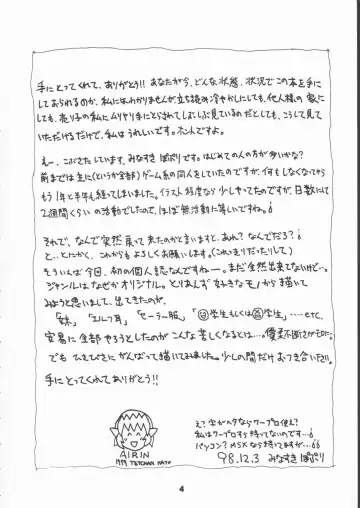 手にとってくれて、ありがとう!! あなたが今、どんな状態、状況でこの本を手に
しておられるのか、私にはわかりませんが、立ち読の冷やかしにしても、他人様の家に
しても、売り子の私にムリヤリ手にとらされてしぶしぶ見ているのだとしても、こうして見て
いただけるだけで、私はうれしいです。ホントですよ。
えー、ごぶさたしています、みなずき ぽぷりです。はじめての人の方が多いかな?
前までは主に(というか全部)ゲーム系の同人をしていたのですが、何もしなくなってから
もう1年と半年も経ってしまいました。イラスト程度なら少しやってたのですが、日数にして
2週間くらいの活動でしたので、ほぼ無活動に等しいですね。
それで、なんで突然戻って来たのかと言いますと、あれ? なんでだろ?
と、とにかく、これからもよろしくお願いします。(これっきりだったりして)
そういえば今回、初の個人誌なんですねー。まだ全然出来てないけど…。
ジャンルはなぜかオリジナル。とりあえず好きなモノから描いて
みようと思いまして、出てきたのが、
「妹」「エルフ耳」「セーラー服」「㊥学生もしくは㊤学生」……etc.
安易に全部やろうとしたのがこんな苦しくなるとは…。優柔不断さがそこに。
でも ひさびさに がんばって描いてみました。少しの間だけおつき合い下さい。
手にとってくれてありがとう!!
AIRIN
え? 字がヘタならワープロ使え?
私はワープロすら持ってないのです…
パソコン? MSXなら持ってますが…
98.12.3 みなずき ぽぷり
4